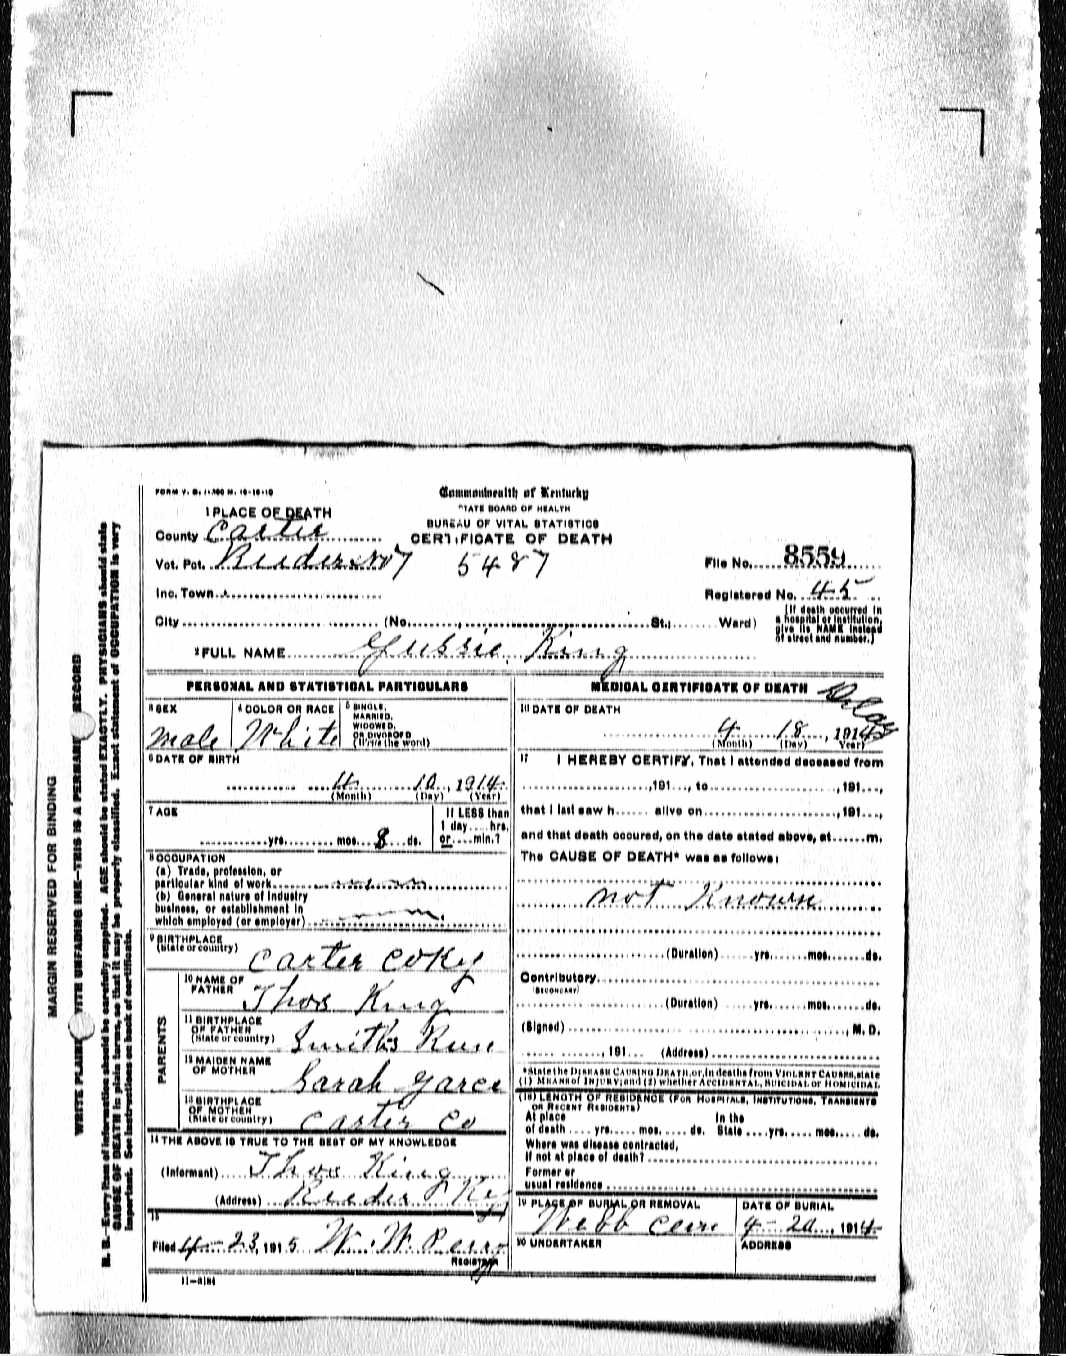 FORM V. S. 1-
Commonwealth of Kentucky
STATE BOARD OF HEALTH
BUREAU OF VITAL STATISTICS
CERTIFICATE OF DEATH
1 PLACE OF DEATH
County Carter
Vot. Pct. Reeder No 7 5487
File No. 8559
Inc. Town
Registered No. 45
City (No. , St.; Ward)
[If death occurred in
a hospital or institution,
give its NAME instead
of street and number.]
2 FULL NAME Gussie King
PERSONAL AND STATISTICAL PARTICULARS
3 SEX
male
4 COLOR OR RACE
White
5 SINGLE,
MARRIED,
WIDOWED,
OR DIVORCED
(Write the word)
6 DATE OF BIRTH
4 10, 1914
(Month) (Day) (Year)
7 AGE
yrs. mos. 8 ds.
If LESS than
1 day hrs.
or min.?
8 OCCUPATION
(a) Trade, profession, or
particular kind of work
(b) General nature of industry
business, or establishment in
which employed (or employer)
9 BIRTHPLACE
(State or country)
Carter Co Ky
PARENTS
10 NAME OF
FATHER
Thos King
11 BIRTHPLACE
OF FATHER
(State or country)
Smiths Run
12 MAIDEN NAME
OF MOTHER
Sarah
13 BIRTHPLACE
OF MOTHER
(State or country)
Carter Co
14 THE ABOVE IS TRUE TO THE BEST OF MY KNOWLEDGE
(Informant) Thos King
(Address) Reeder Ky
15
Filed 4-23, 1915 W. W. Perry
REGISTRAR
11-3184
MEDICAL CERTIFICATE OF DEATH
Delay
16 DATE OF DEATH
4 18, 191
(Month) (Day) (Year)
17 I HEREBY CERTIFY, That I attended deceased from
, 191 , to , 191 ,
that I last saw h alive on , 191 ,
and that death occured, on the date stated above, at m.
The CAUSE OF DEATH* was as follows:
not Known
(Duration) yrs. mos. ds.
Contributory
(SECONDARY)
(Duration) yrs. mos. ds.
(Signed) , M. D.
, 191 (Address)
*State the DISEASE CAUSING DEATH, or, in deaths from VIOLENT CAUSES, state
(1) MEANS OF INJURY; and (2) whether ACCIDENTAL, SUICIDAL or HOMICIDAL
(18) LENGTH OF RESIDENCE (FOR HOSPITALS, INSTITUTIONS, TRANSIENTS
OR RECENT RESIDENTS)
At place In the
of death yrs. mos. ds. State yrs. mos. ds.
Where was disease contracted,
if not at place of death?
Former or
usual residence
19 PLACE OF BURIAL OR REMOVAL
Webb Cem
DATE OF BURIAL
4-20, 1914
20 UNDERTAKER
ADDRESS
MARGIN RESERVED FOR BINDING
WRITE PLAINLY WITH UNFADING INK—THIS IS A PERMANENT RECORD
N. B.—Every item of information should be carefully supplied. AGE should be stated EXACTLY. PHYSICIANS should state
CAUSE OF DEATH in plain terms, so that it may be properly classified. Exact statement of OCCUPATION is very
important. See instructions on back of certificate.